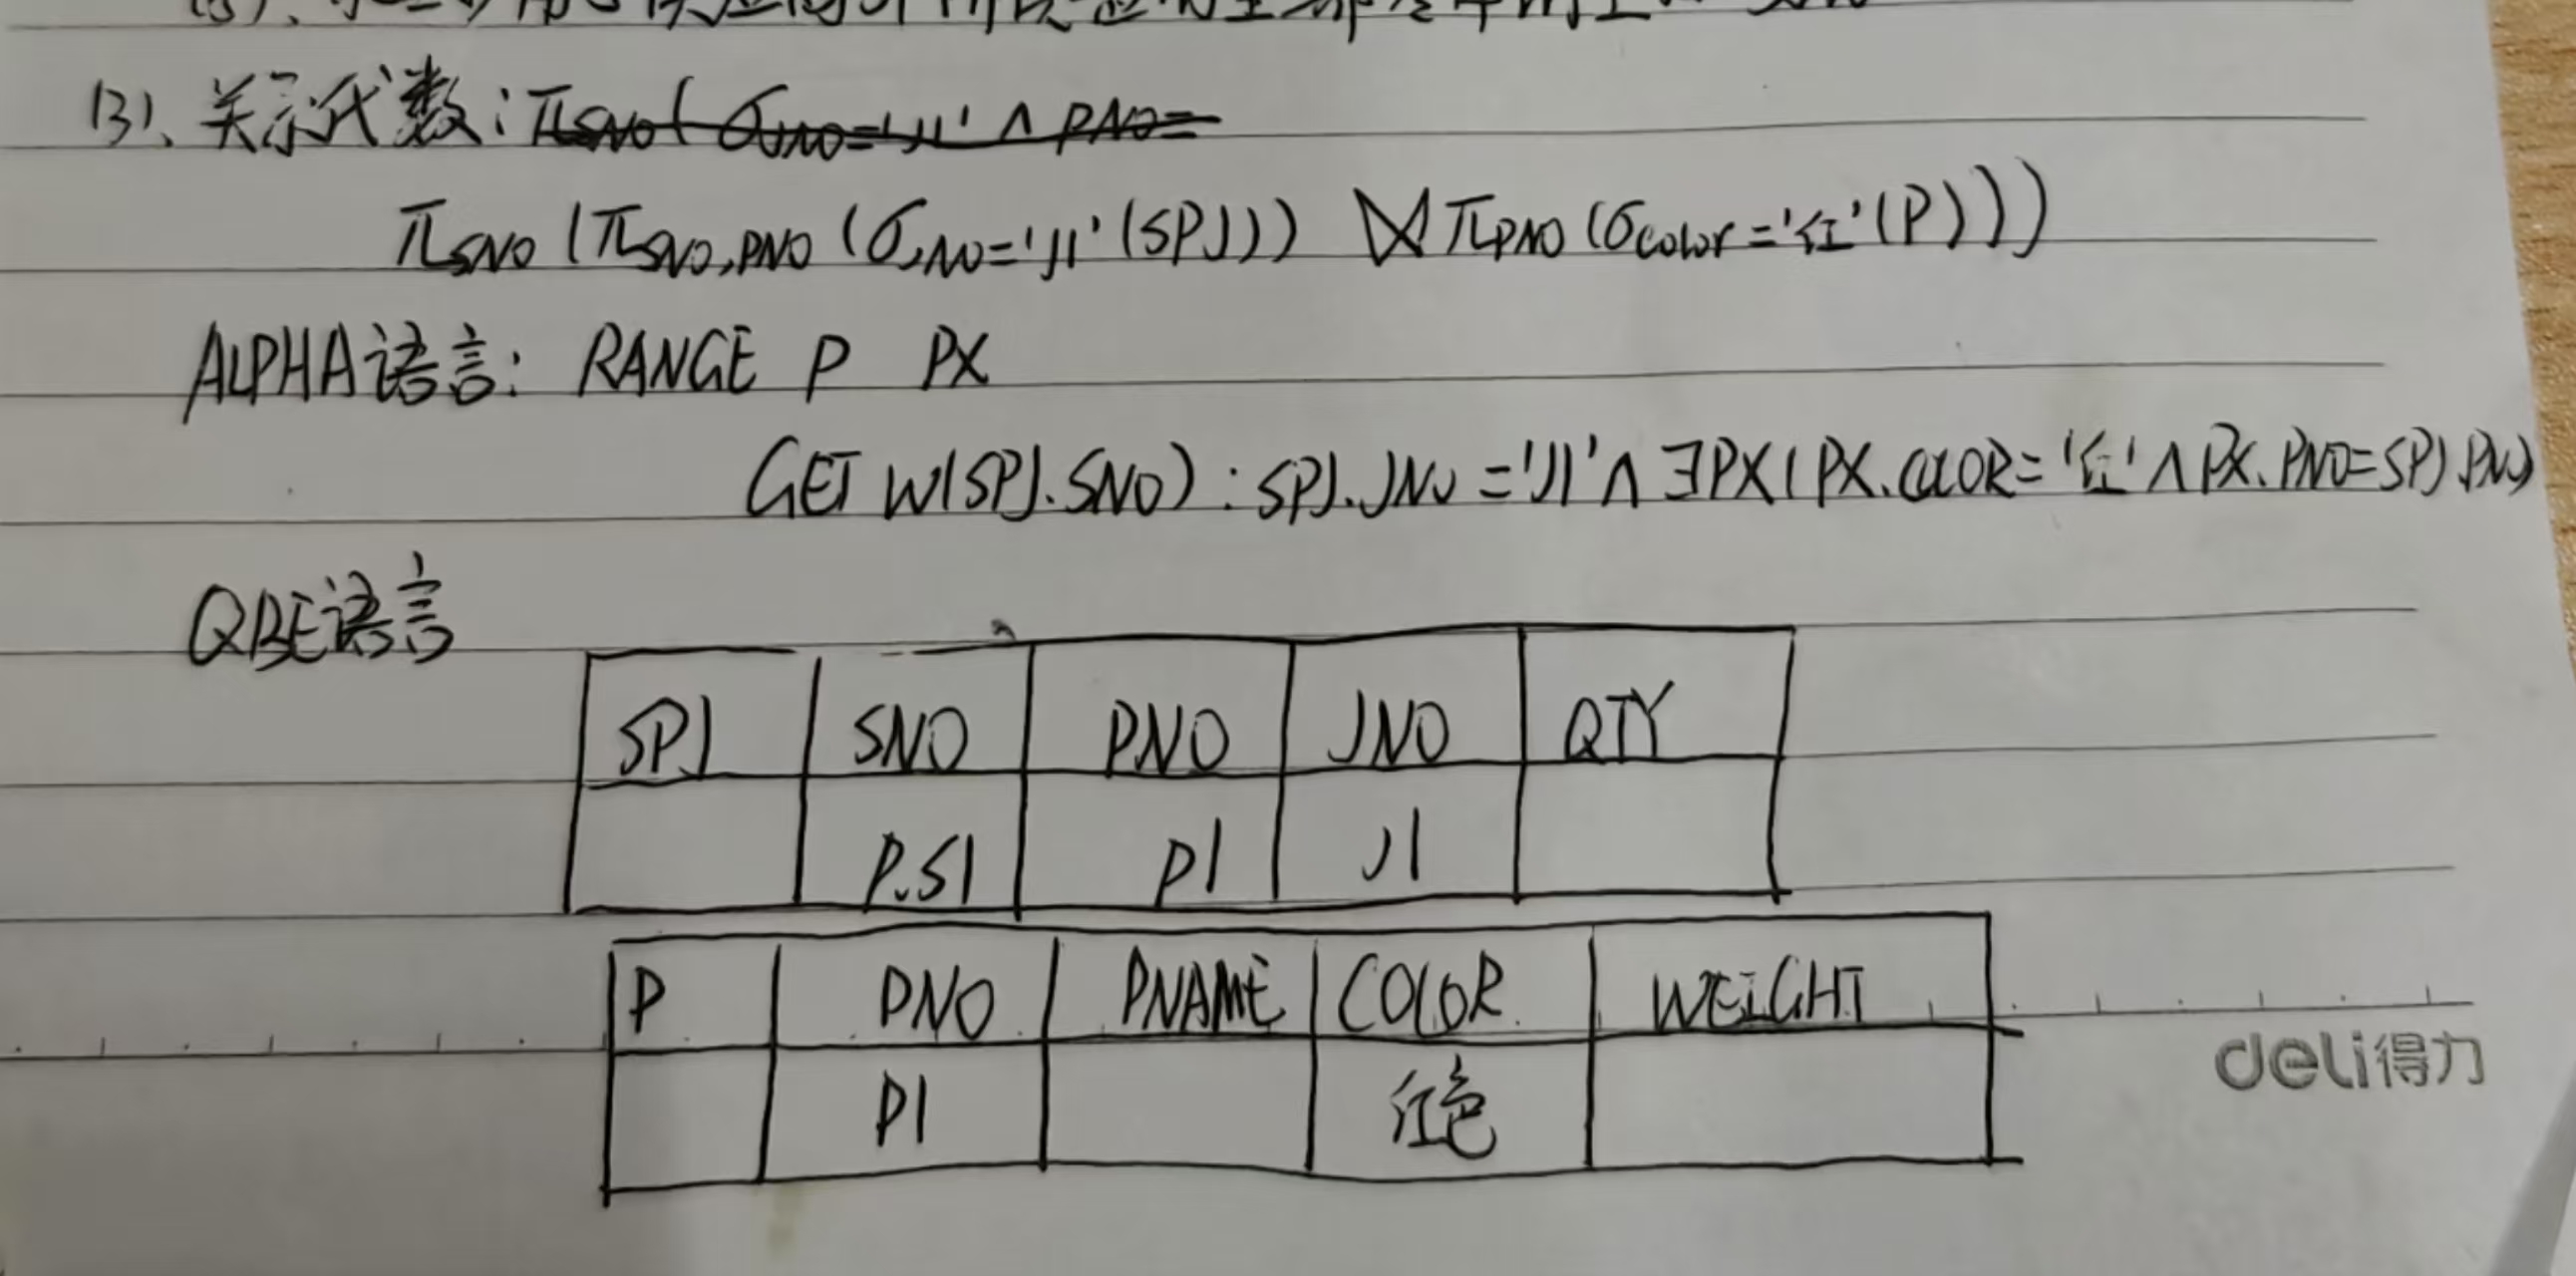 (3)、关系代数:
π_SNO(π_SNO,PNO(σ_JNO='J1'(SPJ)) ⋈ π_PNO(σ_COLOR='红'(P)))
ALPHA语言: RANGE P PX
GET W(SPJ.SNO) : SPJ.JNO='J1'∧∃PX(PX.COLOR='红'∧PX.PNO=SPJ.PNO)
QBE语言
SPJ SNO PNO JNO QTY
P.S1 P1 J1
P PNO PNAME COLOR WEIGHT
P1 红色
deli得力